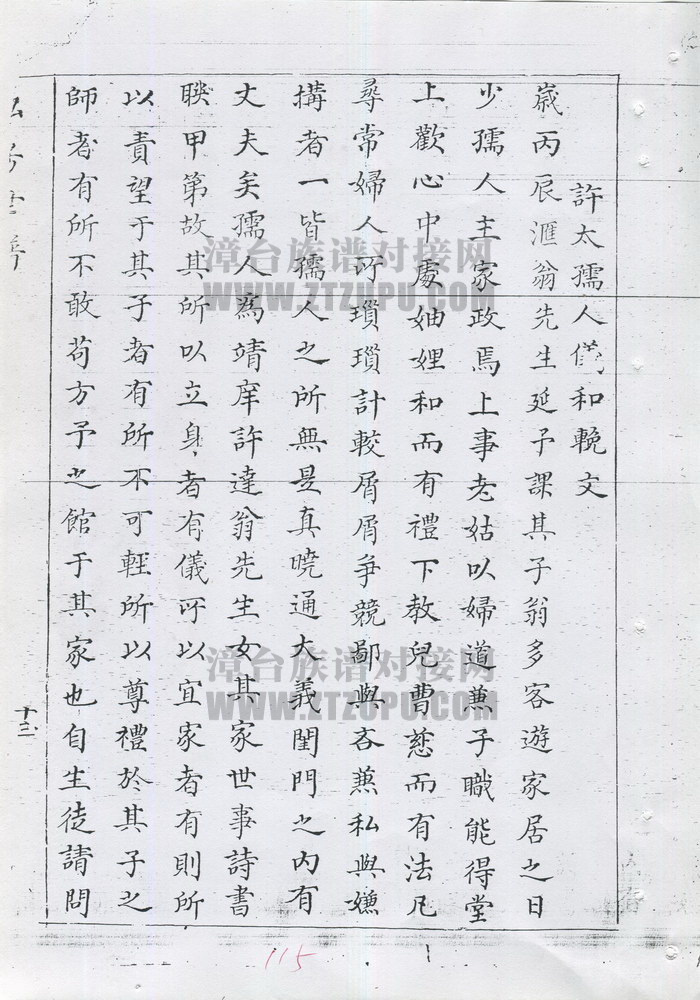 許太孺人儀和輓文
歲丙辰滙翁先生延予課其子翁多客遊家居之日
少孺人主家政焉上事老姑以婦道蕪子職能得堂
上歡心中處妯娌和而有禮下教兒曹慈而有法凡
尋常婦人所瑣瑣計較屑屑爭競鄙與吝蕪私與嫌
搆者一皆孺人之所無是真曉通大義閨門之內有
丈夫矣孺人為靖庠許達翁先生女其家世事詩書
聯甲第故其所以立身者有儀所以宜家者有則所
以責望于其子者有所不可輕所以尊禮於其子之
師者有所不敢苟方予之館于其家也自生徒請問
十三
115
漳台族谱对接网
WWW.ZTZUPU.COM
漳台族谱对接网
WWW.ZTZUPU.COM